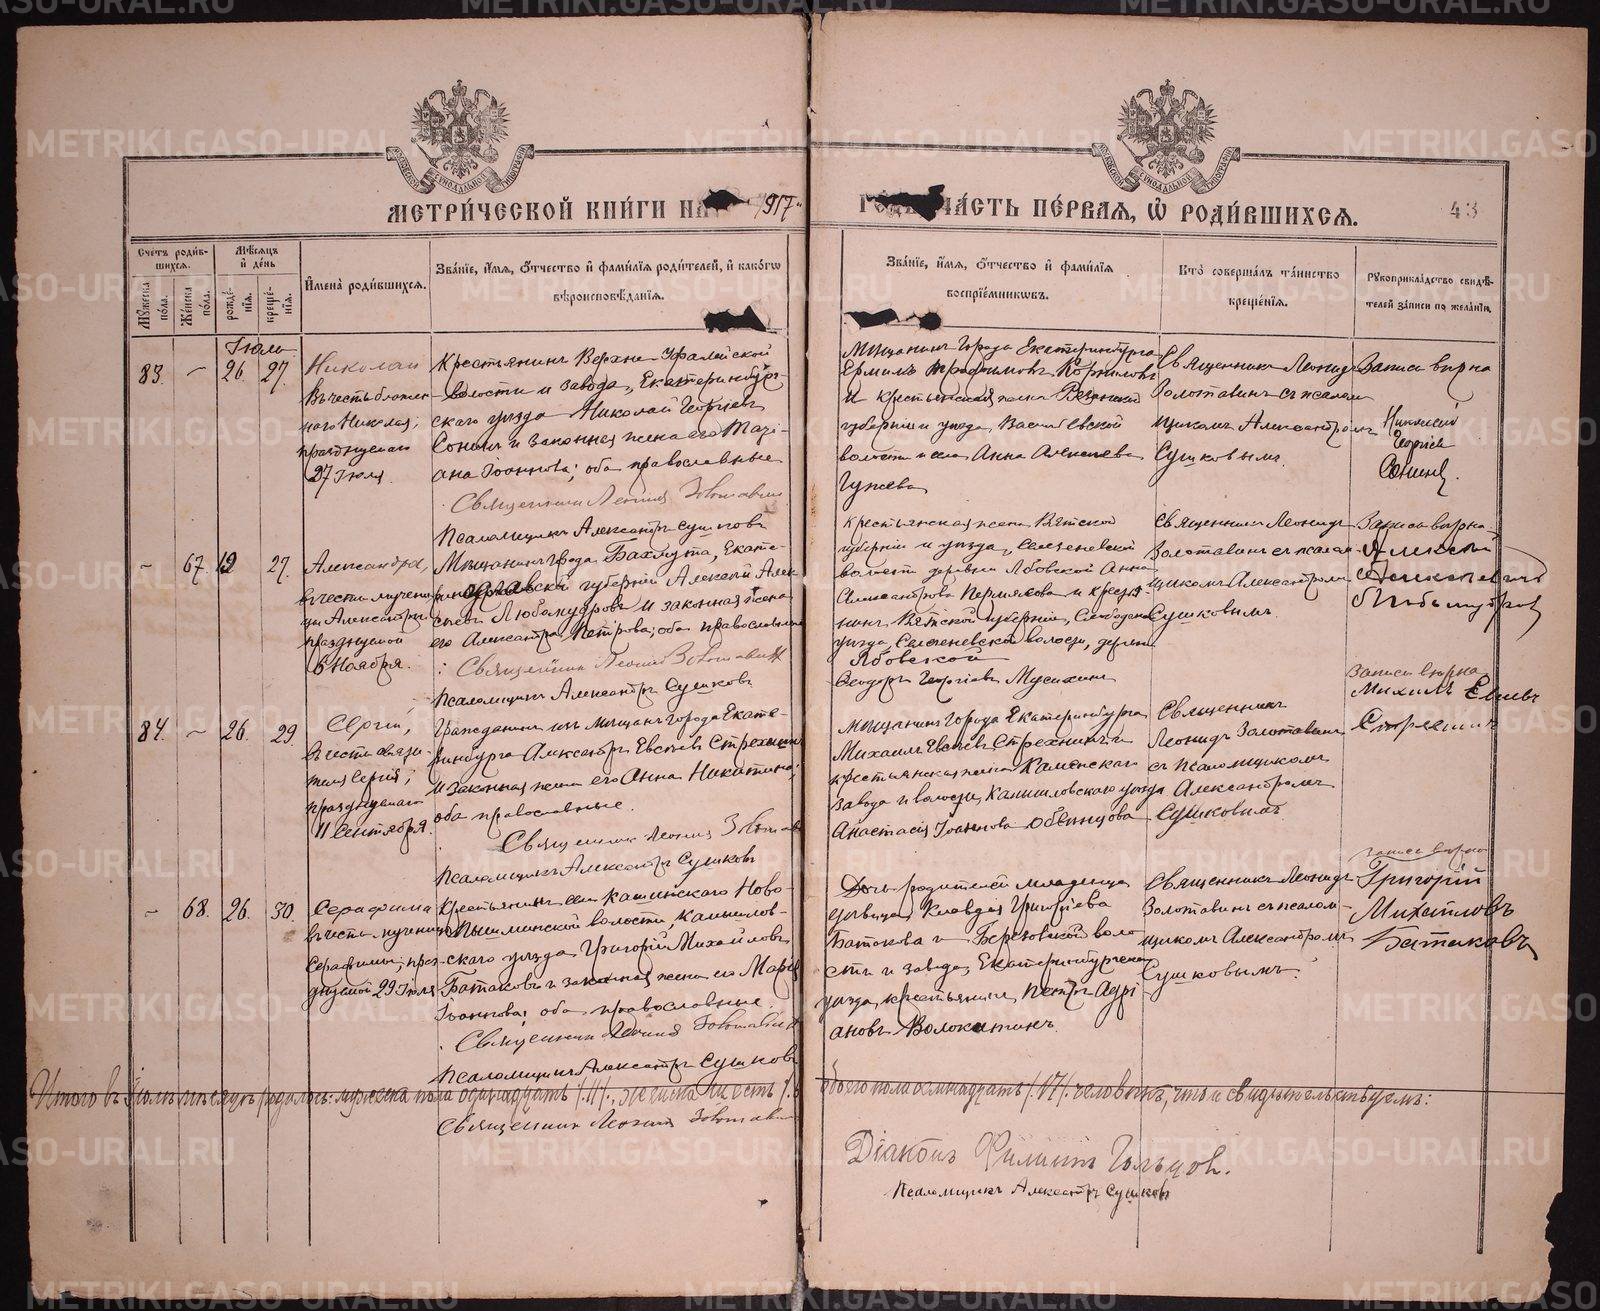 МЕТРИ́ЧЕСКОЙ КНИ́ГИ НА 1917
ЧА́СТЬ ПЕ́РВАЯ, Ѡ РОДИ́ВШИХСЯ.
43
Счетъ роди́в-
шихся.
Мѣ́сяцъ
и де́нь
Му́жеска
по́ла.
Же́нска
по́ла.
рожде́-
нія.
креще́-
нія.
Имена̀ роди́вшихся.
Зва́ніе, и́мя, о́тчество и фами́лія роди́телей, и како́гѡ
вѣроисповѣ́данія.
Зва́ніе, и́мя, о́тчество и фами́лія
воспріе́мниковъ.
Кто̀ соверша́лъ та́инство
креще́нія.
Рукоприкла́дство свидѣ́-
телей за́писи по жела́нію.
Іюль
83.
–
26
27.
Николай
въ честь блажен-
наго Николая,
празднуемаго
27 Іюля.
Крестьянинъ Верхне-Уфалейской
волости и завода, Екатеринбург-
скаго уѣзда Николай Георгіевъ
Сонинъ и законная жена его Тати-
ана Іоаннова; оба православные
Священникъ Леонидъ Золотавинъ
Псаломщикъ Александръ Сушковъ
Мѣщанинъ города Екатеринбурга
Ермилъ Трофимовъ Корниловъ
и крестьянская жена Рязанской
губерніи и уѣзда, Васильевской
волости и села Анна Алексѣева
Гужева
Священникъ Леонидъ
Золотавинъ съ псалом-
щикомъ Александромъ
Сушковымъ.
Запись вѣрна
Николай
Георгіев
Сонинъ.
–
67.
27.
Александра,
въ честь мучени-
цы Александры
празднуемой
6 Ноября.
Мѣщанинъ города Бахмута, Екате-
ринославской губерніи Алексѣй Алек-
сѣевъ Любомудровъ и законная жена
его Александра Петрова; оба православные
Священникъ Леонидъ Золотавинъ
Псаломщикъ Александръ Сушковъ
Крестьянская жена Вятской
губерніи и уѣзда, Селезеневской
волости деревни Лбовской Анна
Александрова Пермякова и крестья-
нинъ Вятской губерніи, Слободского
уѣзда, Селезеневской волости, деревни
Лбовской
Ѳеодоръ Георгіевъ Мусихинъ
Священникъ Леонидъ
Золотавинъ съ псалом-
щикомъ Александромъ
Сушковымъ.
Запись вѣрна
Алексей
Алексеевичъ
Любомудров
84.
–
26.
29.
Сергій,
въ честь
Сергія,
празднуемаго
11 Сентября.
Гражданинъ изъ мѣщанъ города Екате-
ринбурга Александръ Евсѣевъ Стрехнинъ
и законная жена его Анна Никитина;
оба православные.
Священникъ Леонидъ Золотавинъ
Псаломщикъ Александръ Сушковъ
Мѣщанинъ города Екатеринбурга
Михаилъ Евсѣевъ Стрехнинъ и
крестьянская жена Каменскаго
завода и волости, Камышловскаго уѣзда
Анастасія Іоаннова Обвинцова
Священникъ
Леонидъ Золотавинъ
съ псаломщикомъ
Александромъ
Сушковымъ.
Запись вѣрна
Михаилъ
Стрехнинъ
–
68.
26.
30.
Серафима
въ честь мученицы
Серафимы, праз-
днуемой 29 Іюля
Крестьянинъ села Кашинскаго Ново-
Пышминской волости, Камышлов-
скаго уѣзда, Григорій Михайловъ
Батаковъ и законная жена его Марія
Іоаннова; оба православные.
Священникъ Леонидъ Золотавинъ
Псаломщикъ Александръ Сушковъ
Дочь родителей младенца
дѣвица Клавдія Григоріева
Батакова и Березовской воло-
сти и завода, Екатеринбургскаго
уѣзда, крестьянинъ Петръ Адрі-
ановъ Волокитинъ.
Священникъ Леонидъ
Золотавинъ съ псалом-
щикомъ Александромъ
Сушковымъ.
Запись вѣрна
Григорій
Михаиловъ
Батаковъ
Итого въ Іюлѣ мѣсяцѣ родилось: мужеска пола одинадцать /.11/., женска шесть /.6
обоего пола семнадцать /.17/. человѣкъ, что и свидѣтельствуемъ:
Священникъ Леонидъ Золотавинъ
Діаконъ Филиппъ Гольцов.
Псаломщикъ Александръ Сушковъ
METRIKI.GASO-URAL.RU